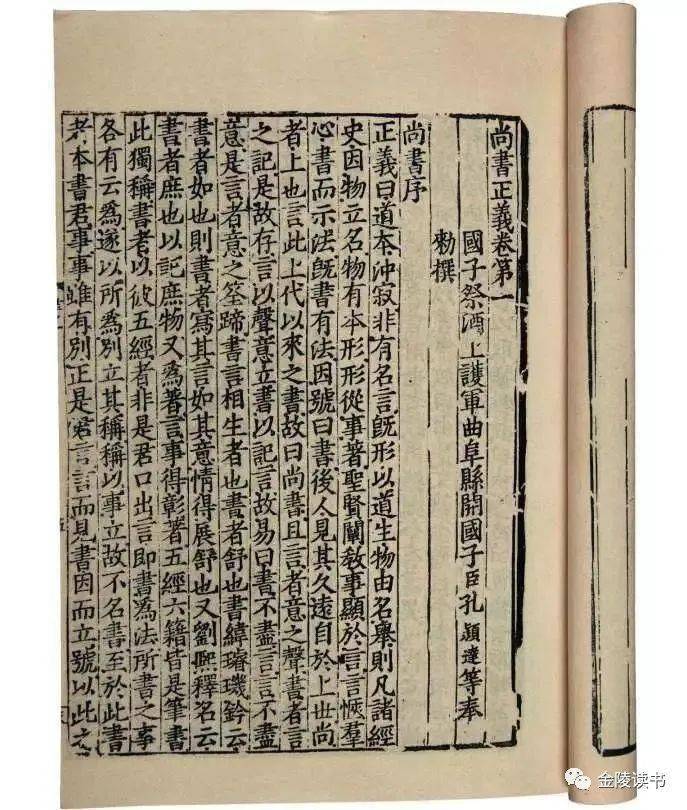 尚書正義卷第一
國子祭酒上護軍曲阜縣開國子臣孔穎達等奉
勑撰
尚書序
正義曰道本沖寂非有名言既形以道生物由名舉則凡諸經
史因物立名物有本形形從事著聖賢闡教事顯於言言愜羣
心書而示法既書有法因號曰書後人見其久遠自於上世尚
者上也言此上代以來之書故曰尚書且言者意之聲書者言
之記是故存言以聲意立書以記言故易曰書不盡言言不盡
意是言者意之筌蹄書言相生者也書者舒也書緯璿璣鈐云
書者如也則書者寫其言如其意情得展舒也又劉熙釋名云
書者庶也以記庶物又為著言事得彰著五經六籍皆是筆書
此獨稱書者以彼五經者非是君口出言即書為法所書之事
各有云為遂以所為別立其稱稱以事立故不名書至於此書
者本書君事事雖有別正是君言言而見書因而立號以此之
金陵读书